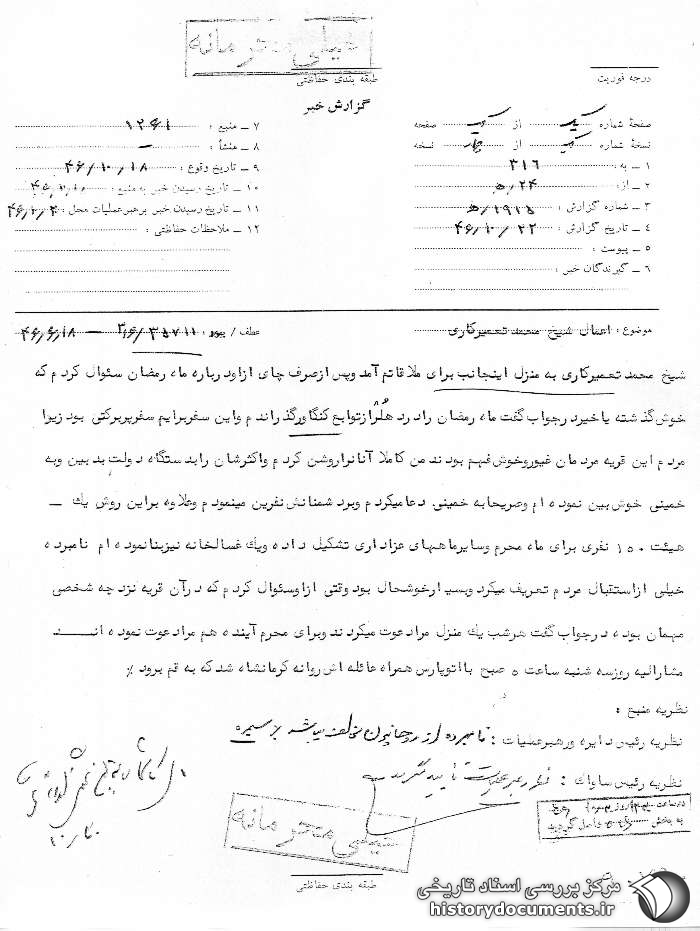 خیلی محرمانه
طبقه بندی حفاظتی
درجه فوریت
گزارش خبر
صفحهٔ شماره یک از یک صفحه
نسخهٔ شماره یک از چهار نسخه
۱ ـ به : ۳۱۶
۲ ـ از: ۲۴/ه
۳ ـ شماره گزارش : ۱۹۱۵/ه
۴ ـ تاریخ گزارش : ۴۶/۱۰/۲۲
۵ ـ پیوست :
۶ ـ گیرندگان خبر :
۷ ـ منبع : ۱۲۶۱
۸ ـ منشأ : ـ
۹ ـ تاریخ وقوع : ۴۶/۱۰/۱۸
۱۰ ـ تاریخ رسیدن خبر به منبع :
۱۱ ـ تاریخ رسیدن خبر برهبر عملیات محل :
۱۲ ـ ملاحظات حفاظتی :
موضوع : اعمال شیخ محمد تعمیرکاری
عطف / پیرو : ۳۱۶/۳۵۷۱۱ ـ ۴۶/۶/۱۸
شیخ محمد تعمیرکاری به منزل اینجانب برای ملاقاتم آمد وپس ازصرف چای ازاودرباره ماه رمضان سئوال کردم که
خوش گذشته یاخیردرجواب گفت ماه رمضان رادرده هلرازتوابع کنگاورگذراندم واین سفربرایم سفرپربرکتی بود زیرا
مردم این قریه مردمان غیوروخوش فهم بودند من کاملا آنانراروشن کردم واکثرشان رابدستگاه دولت بدبین وبه
خمینی خوش بین نموده ام وصریحابه خمینی دعامیکردم وبردشمنانش نفرین مینمودم وعلاوه براین روش یک ـ
هیئت ۱۵۰ نفری برای ماه محرم وسایرماههای عزاداری تشکیل داده ویک غسالخانه نیزبنانموده ام نامبرده
خیلی ازاستقبال مردم تعریف میکرد وبسیارخوشحال بود وقتی ازاوسئوال کردم که درآن قریه نزد چه شخصی
مهمان بوده درجواب گفت هرشب یک منزل مرادعوت میکردند وبرای محرم آینده هم مرادعوت نموده انـد
مشارالیه روزسه شنبه ساعت ۵ صبح بااتوپارس همراه عائله اش روانه کرمانشاه شد که به قم برود ٪
نظریه منبع :
نظریه رئیس دایره ورهبرعملیات : نامبرده از روحانیون مخالف میباشد
نظریه رئیس ساواک : نظر رهبر عملیات تایید میگردد
خیلی محرمانه
طبقه بندی حفاظتی
مرکز بررسی اسناد تاریخی
historydocuments.ir